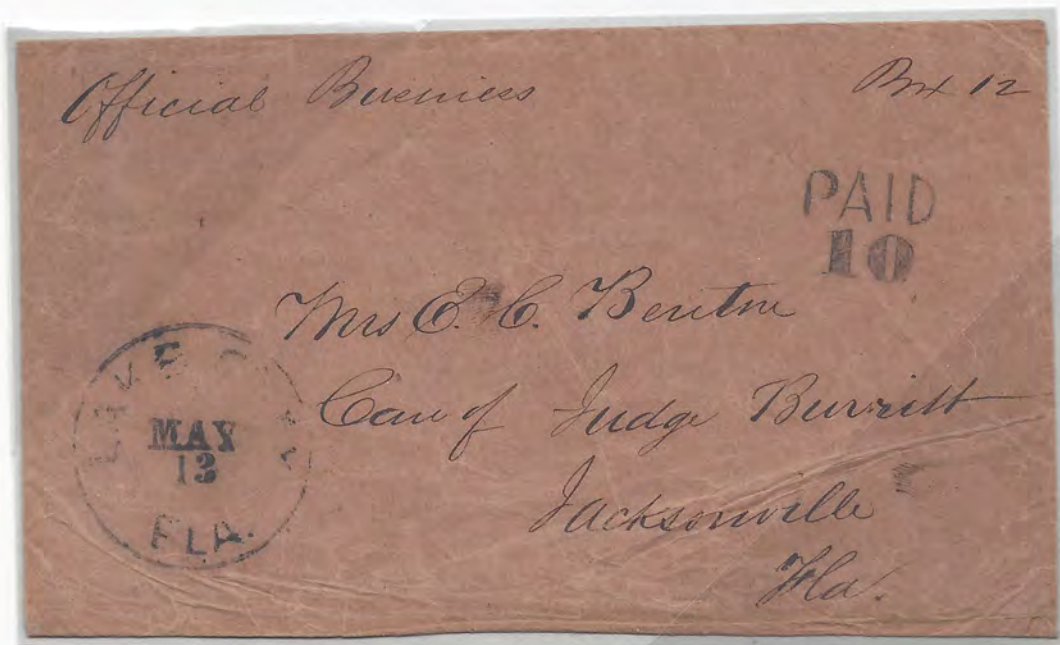 Official Business Box 12
PAID
10
Mrs E. C. Benton
Care of Judge Burritt
Jacksonville
Fla.
LAKE CITY
MAY
13
FLA.